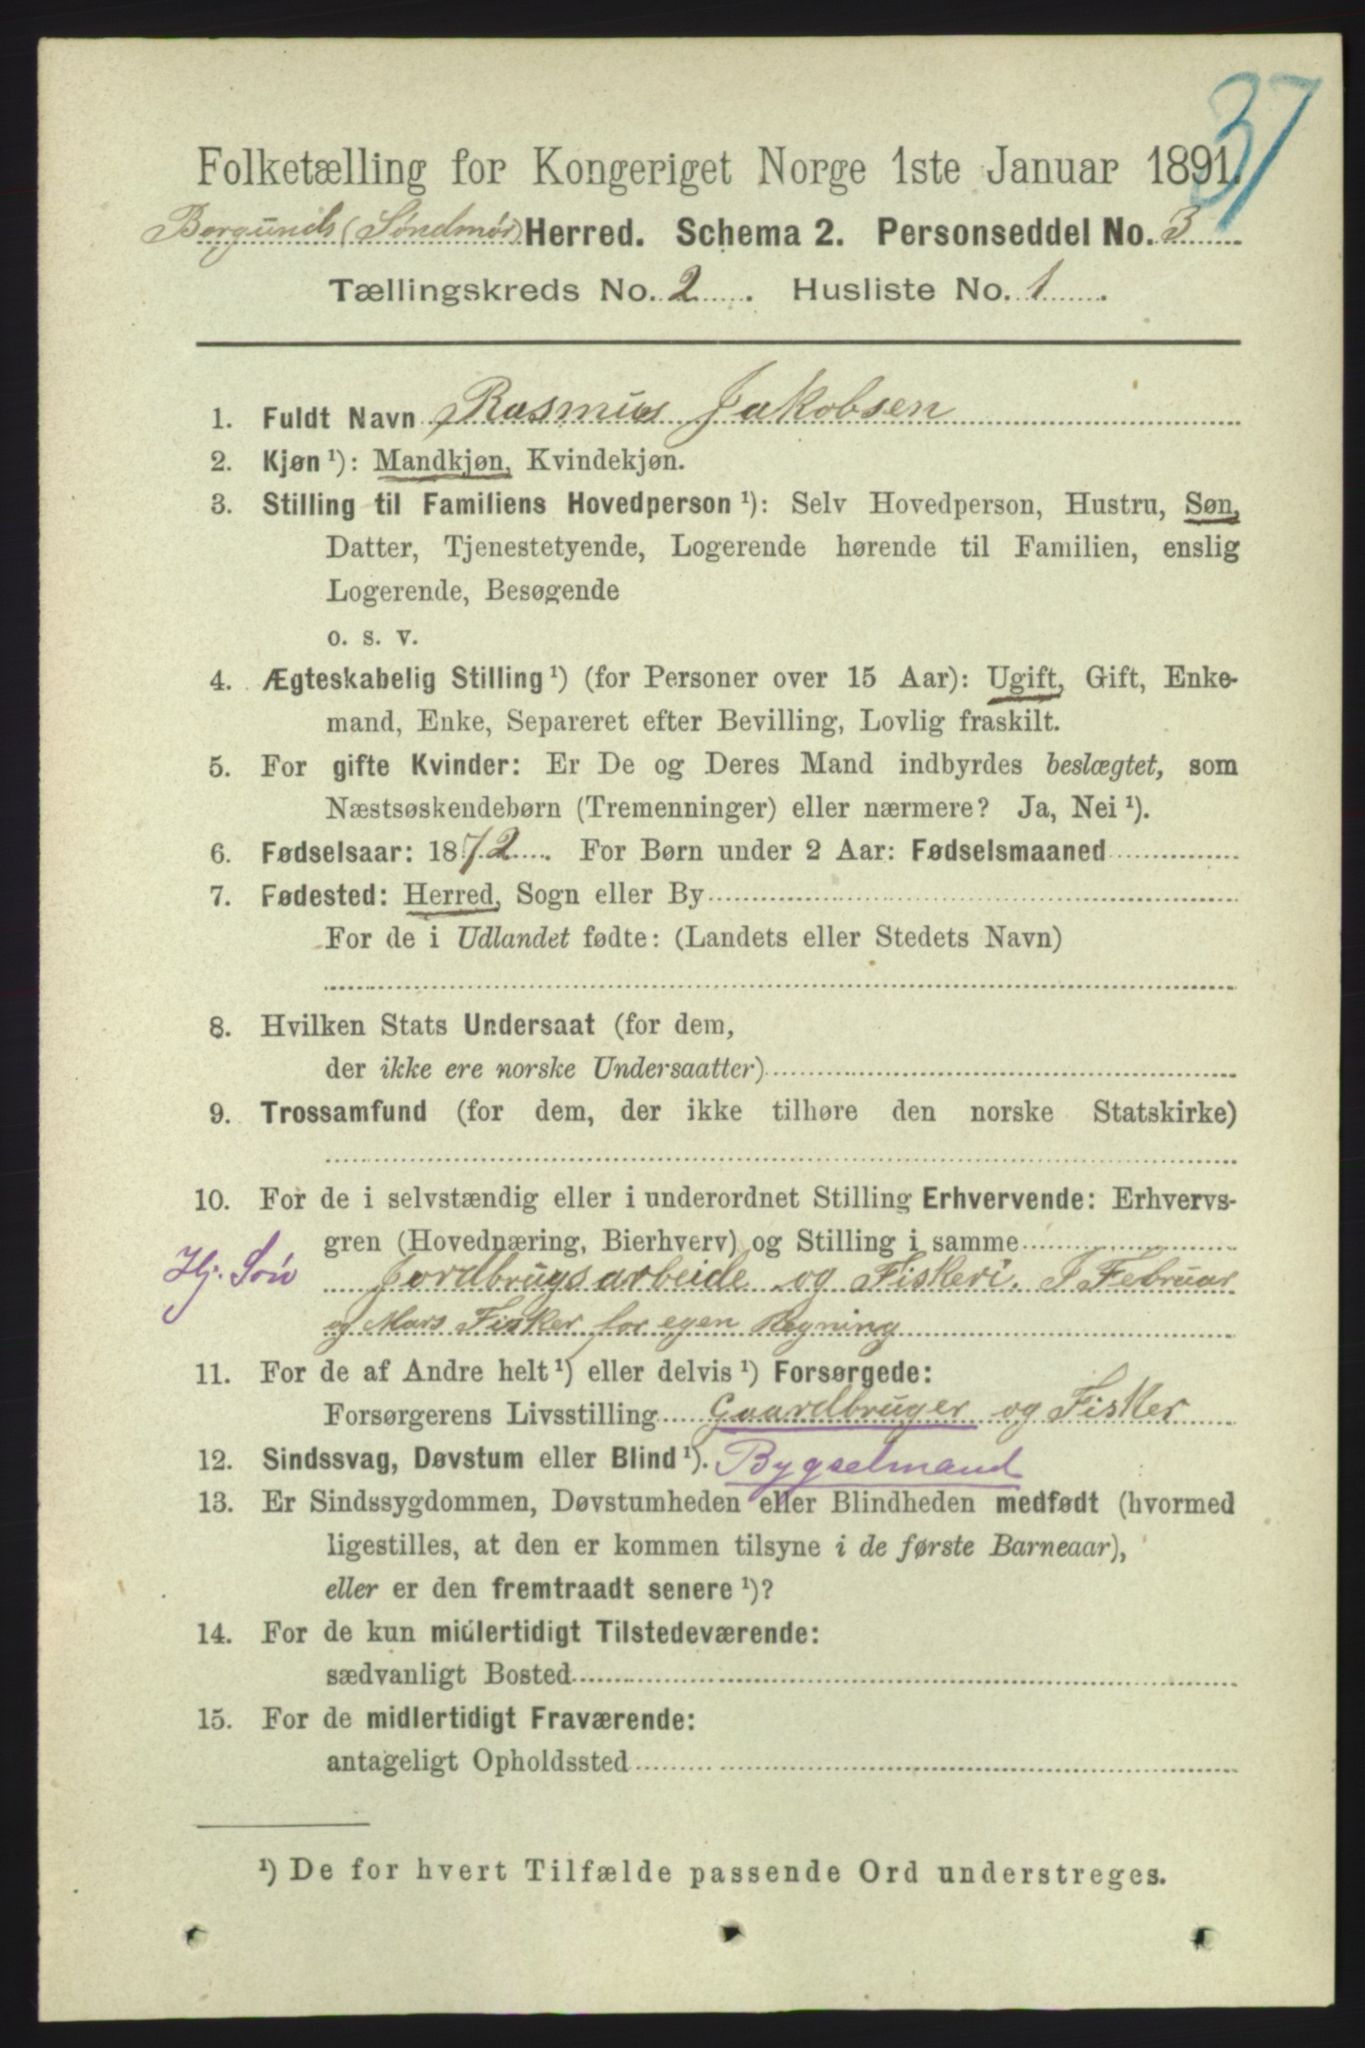 37
Folketælling for Kongeriget Norge 1ste Januar 1891.
Borgunds (Søndmør) Herred. Schema 2. Personseddel No. 3
Tællingskreds No. 2. Husliste No. 1.
1. Fuldt Navn Rasmus Jakobsen
2. Kjøn ¹): Mandkjøn, Kvindekjøn.
3. Stilling til Familiens Hovedperson ¹): Selv Hovedperson, Hustru, Søn,
Datter, Tjenestetyende, Logerende hørende til Familien, enslig
Logerende, Besøgende
o. s. v.
4. Ægteskabelig Stilling ¹) (for Personer over 15 Aar): Ugift, Gift, Enke-
mand, Enke, Separeret efter Bevilling, Lovlig fraskilt.
5. For gifte Kvinder: Er De og Deres Mand indbyrdes beslægtet, som
Næstsøskendebørn (Tremenninger) eller nærmere? Ja, Nei ¹).
6. Fødselsaar: 1872. For Børn under 2 Aar: Fødselsmaaned
7. Fødested: Herred, Sogn eller By
For de i Udlandet fødte: (Landets eller Stedets Navn)
8. Hvilken Stats Undersaat (for dem,
der ikke ere norske Undersaatter)
9. Trossamfund (for dem, der ikke tilhøre den norske Statskirke)
10. For de i selvstændig eller i underordnet Stilling Erhvervende: Erhvervs-
gren (Hovednæring, Bierhverv) og Stilling i samme
Hj. Søn Jordbrugsarbeide og Fiskeri. I Februar
og Mars Fisker for egen Regning
11. For de af Andre helt ¹) eller delvis ¹) Forsørgede:
Forsørgerens Livsstilling Gaardbruger og Fisker
12. Sindssvag, Døvstum eller Blind ¹). Bygselmand
13. Er Sindssygdommen, Døvstumheden eller Blindheden medfødt (hvormed
ligestilles, at den er kommen tilsyne i de første Barneaar),
eller er den fremtraadt senere ¹)?
14. For de kun midlertidigt Tilstedeværende:
sædvanligt Bosted
15. For de midlertidigt Fraværende:
antageligt Opholdssted
¹) De for hvert Tilfælde passende Ord understreges.